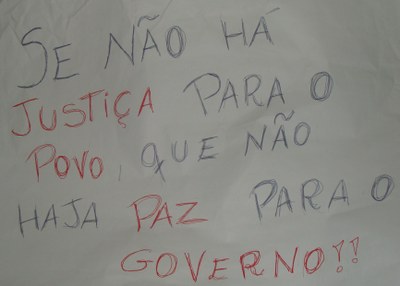 SE NÃO HÁ
JUSTIÇA PARA O
POVO, QUE NÃO
HAJA PAZ PARA O
GOVERNO!!